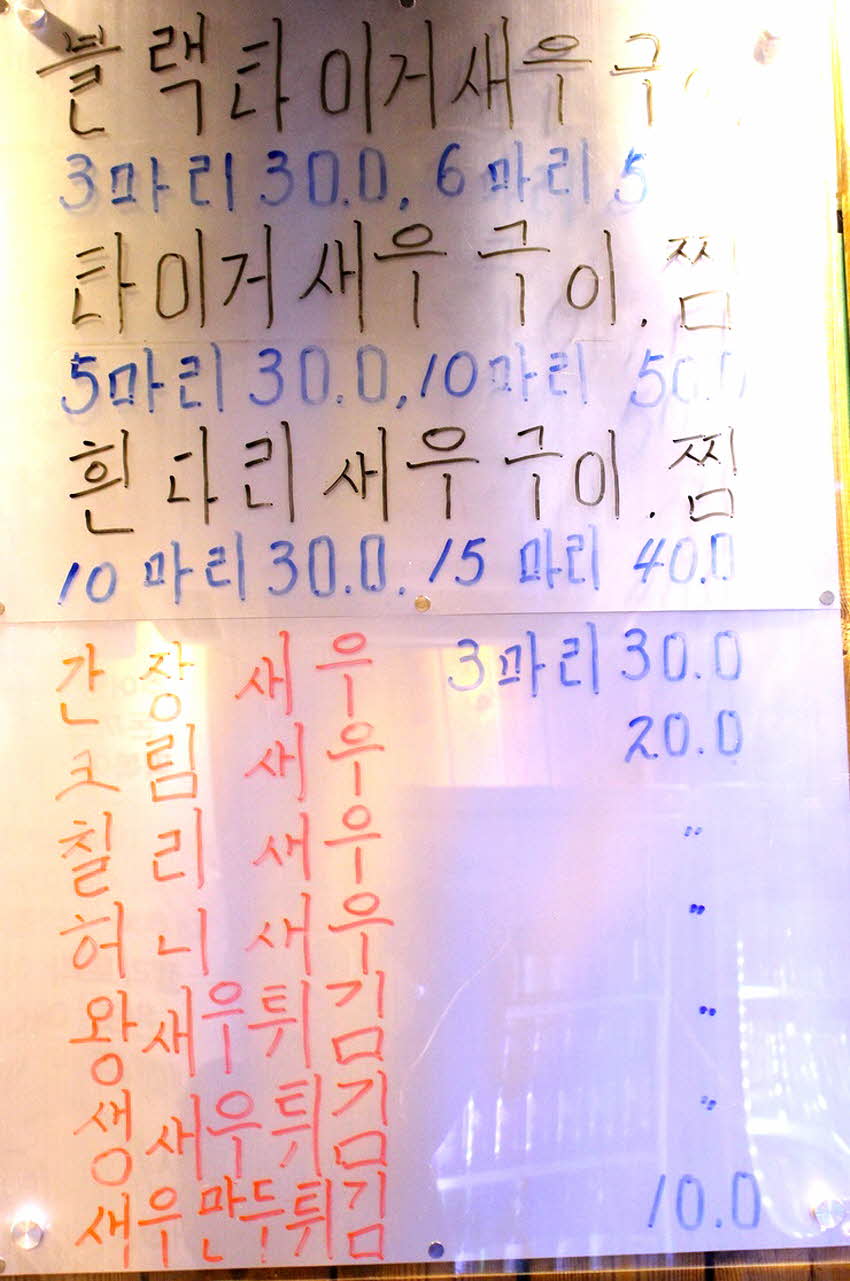 블랙타이거새우구
3마리 30.0, 6마리 5
타이거새우구이.찜
5마리 30.0, 10마리 50.0
흰다리새우구이.찜
10마리 30.0. 15마리 40.0
간장새우 3마리 30.0
크림새우 20.0
칠리새우 〃
허니새우 〃
왕새우튀김 〃
생새우튀김 〃
새우만두튀김 10.0